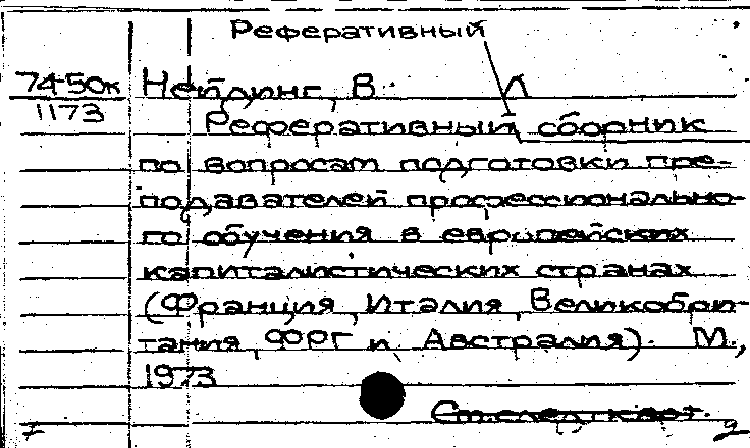 Реферативный
74-50к Нейдинг, В. Л
1173
Реферативный сборник
по вопросам подготовки пре-
подавателей профессионально-
го обучения в европейских
капиталистических странах
(Франция, Италия, Великобри-
тания, ФРГ и Австралия). М.,
1973
См. след. карт.